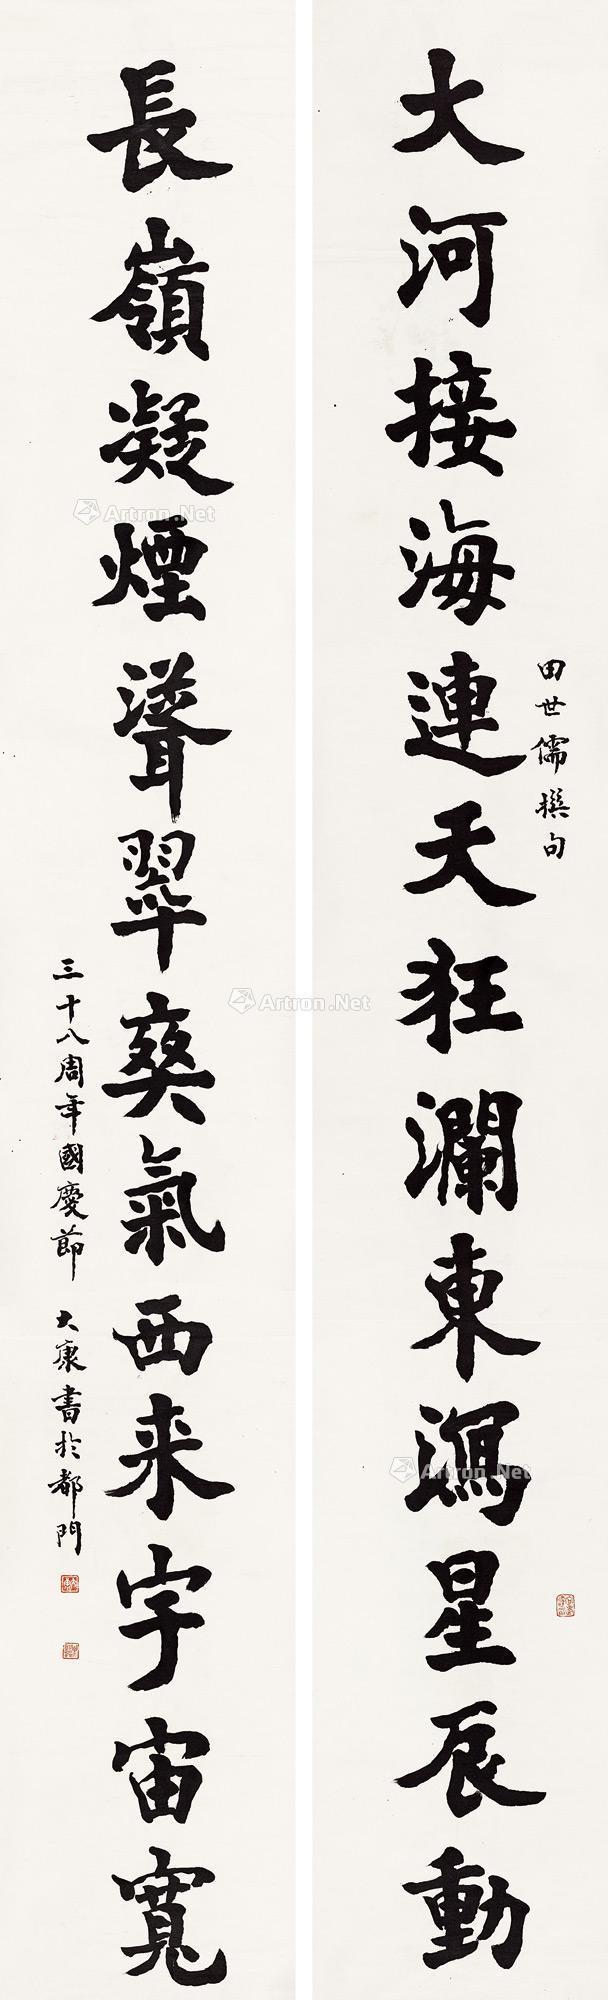 大河接海連天狂瀾東瀉星辰動
田世儒撰句
長嶺凝煙聳翠爽氣西来宇宙寬
三十八周年國慶節 大康書於都門
Artron.Net
Artron.Net
Artron.Net